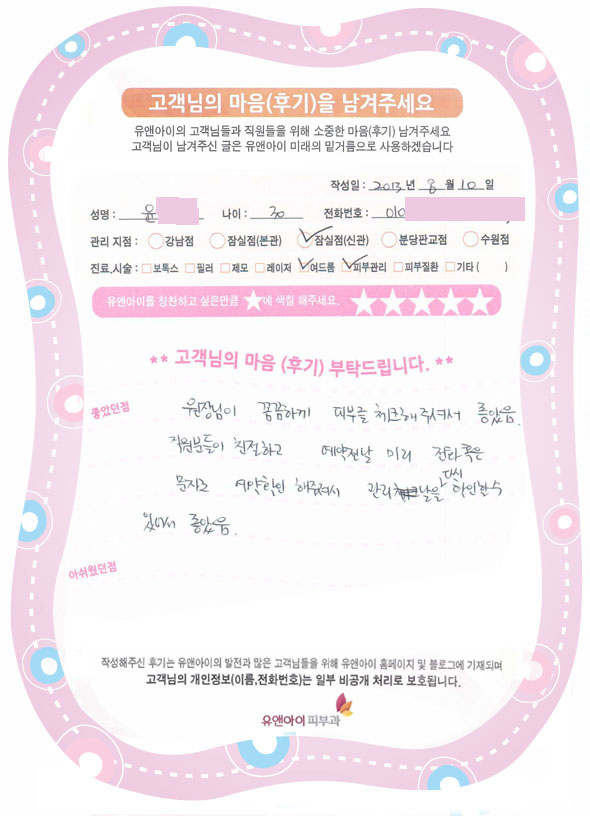 고객님의 마음(후기)을 남겨주세요
유앤아이의 고객님들과 직원들을 위해 소중한 마음(후기) 남겨주세요
고객님이 남겨주신 글은 유앤아이 미래의 밑거름으로 사용하겠습니다
작성일 : 2013년 8월 10일
성명 : 윤 나이 : 30 전화번호 : 010
관리 지점 : 강남점 잠실점(본관) 잠실점(신관) 분당판교점 수원점
진료,시술 : 보톡스 필러 제모 레이저 여드름 피부관리 피부질환 기타 ( )
유앤아이를 칭찬하고 싶은만큼 ★에 색칠 해주세요. ★★★★★
** 고객님의 마음 (후기) 부탁드립니다. **
좋았던점
원장님이 꼼꼼하게 피부를 체크해주셔서 좋았음.
직원분들이 친절하고 예약전날 미리 전화 혹은
문자로 예약확인 해주셔서 관리날을 다시 확인할수
있어서 좋았음.
아쉬웠던점
작성해주신 후기는 유앤아이의 발전과 많은 고객님들을 위해 유앤아이 홈페이지 및 블로그에 기재되며
고객님의 개인정보(이름,전화번호)는 일부 비공개 처리로 보호됩니다.
유앤아이피부과